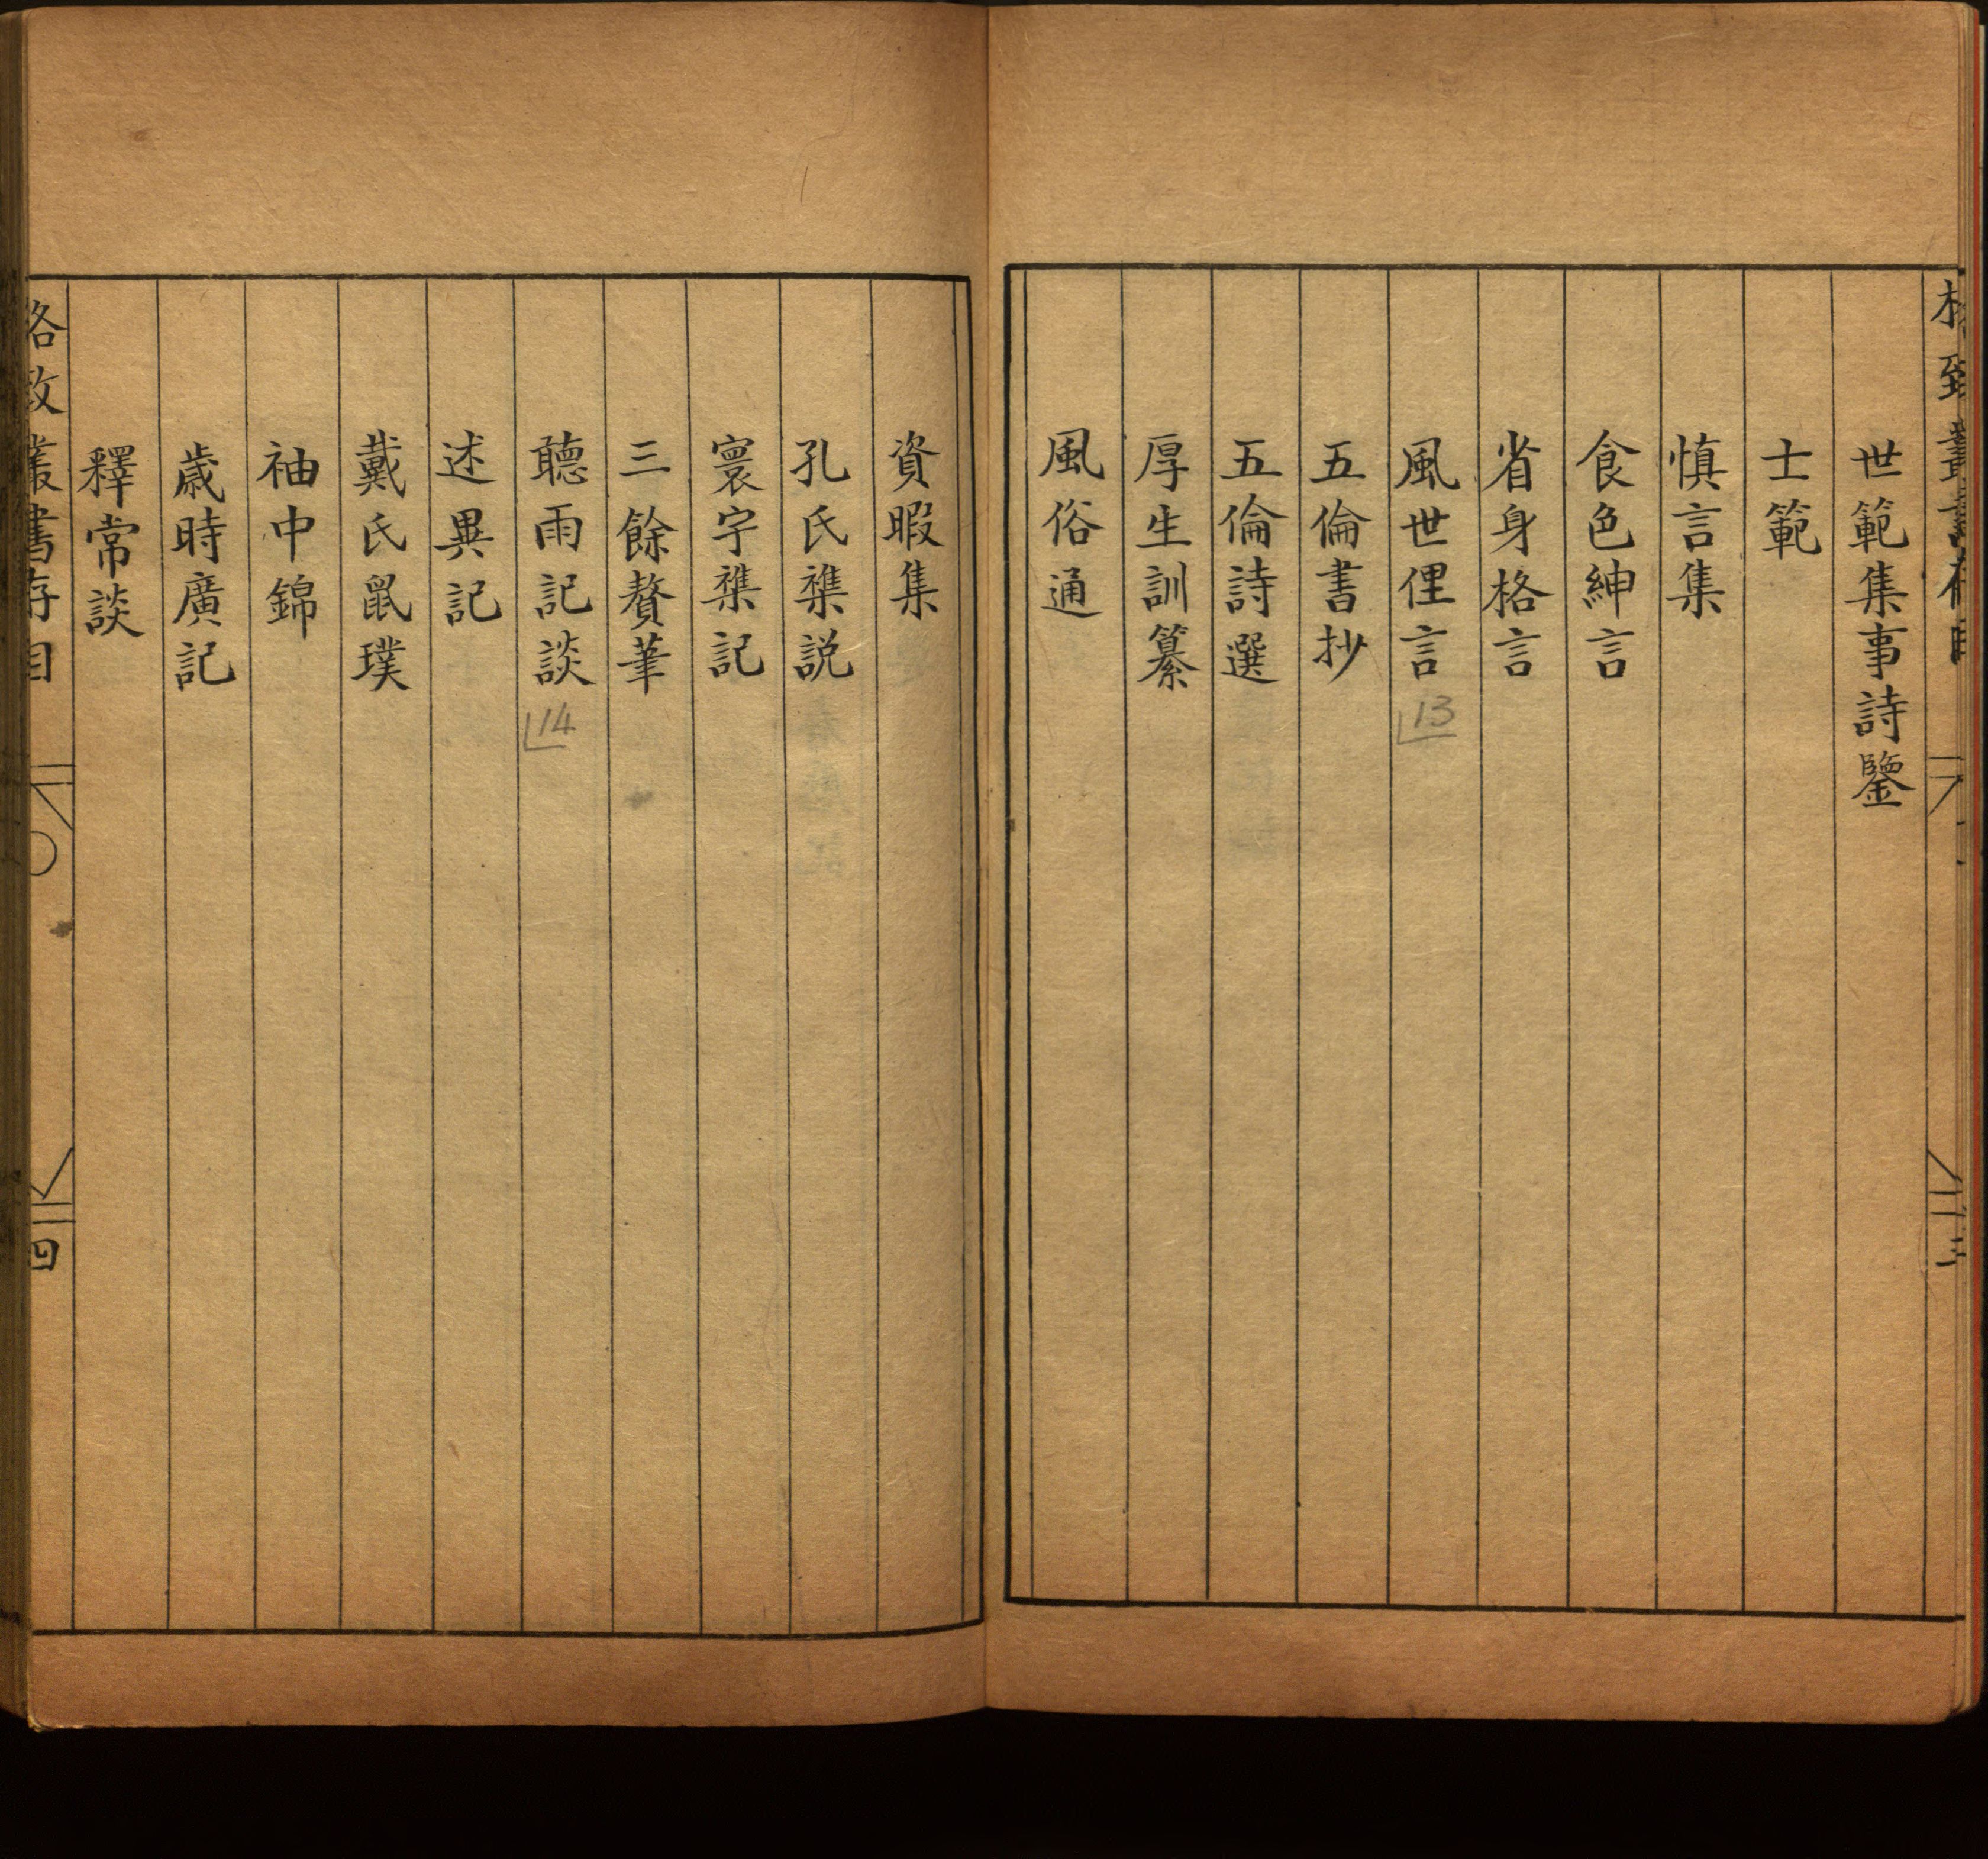 格致叢書存目
三
世範集事詩鑒
士範
慎言集
食色紳言
省身格言
風世俚言
13
五倫書抄
五倫詩選
厚生訓纂
風俗通
資暇集
孔氏襍説
寰宇襍記
三餘贅筆
聽雨記談
14
述異記
戴氏鼠璞
袖中錦
歲時廣記
釋常談
格致叢書存目
四